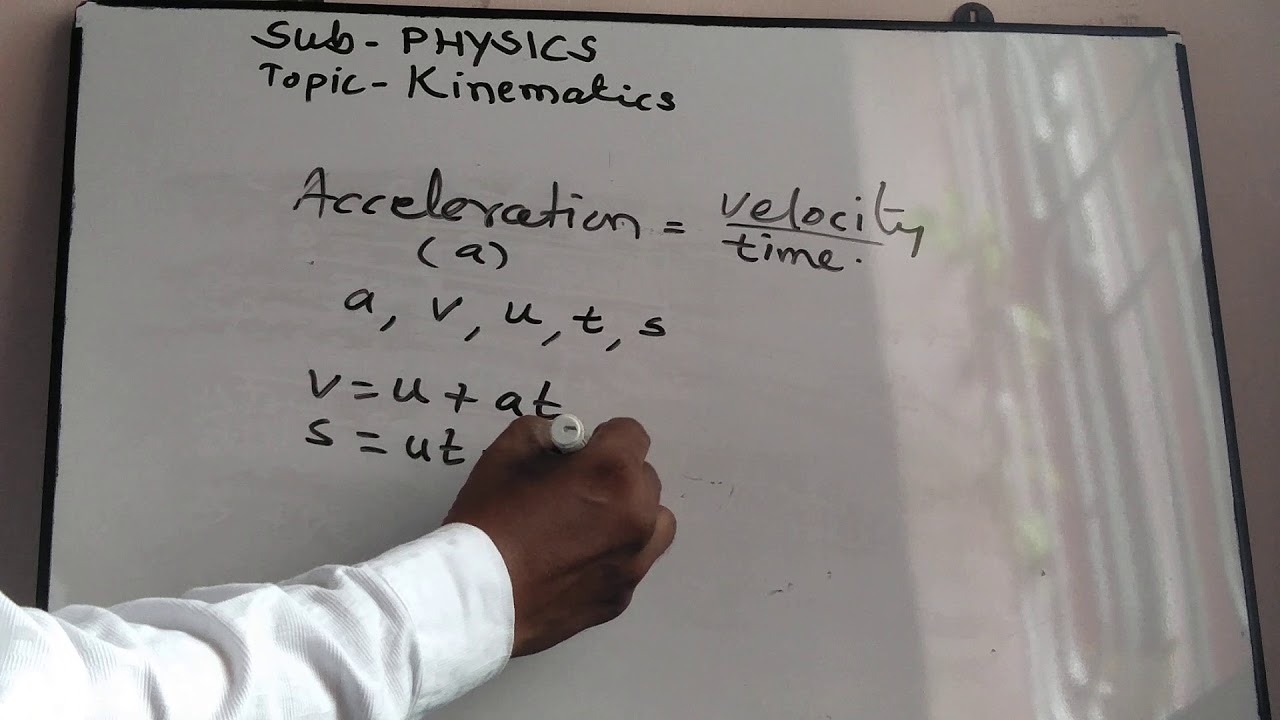 Sub- PHYSICS
Topic- Kinematics
Acceleration = velocity
(a) time.
a, v, u, t, s
v = u + at
s = ut